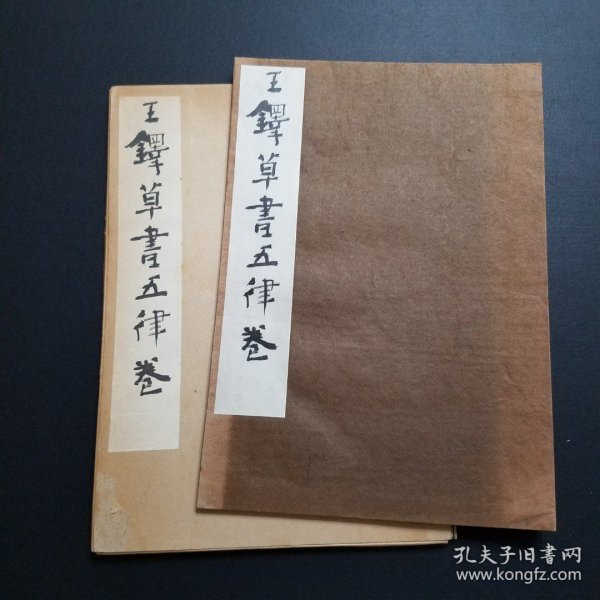 王鐸草書五律卷
王鐸草書五律卷
孔夫子旧書网
www.kongfz.com